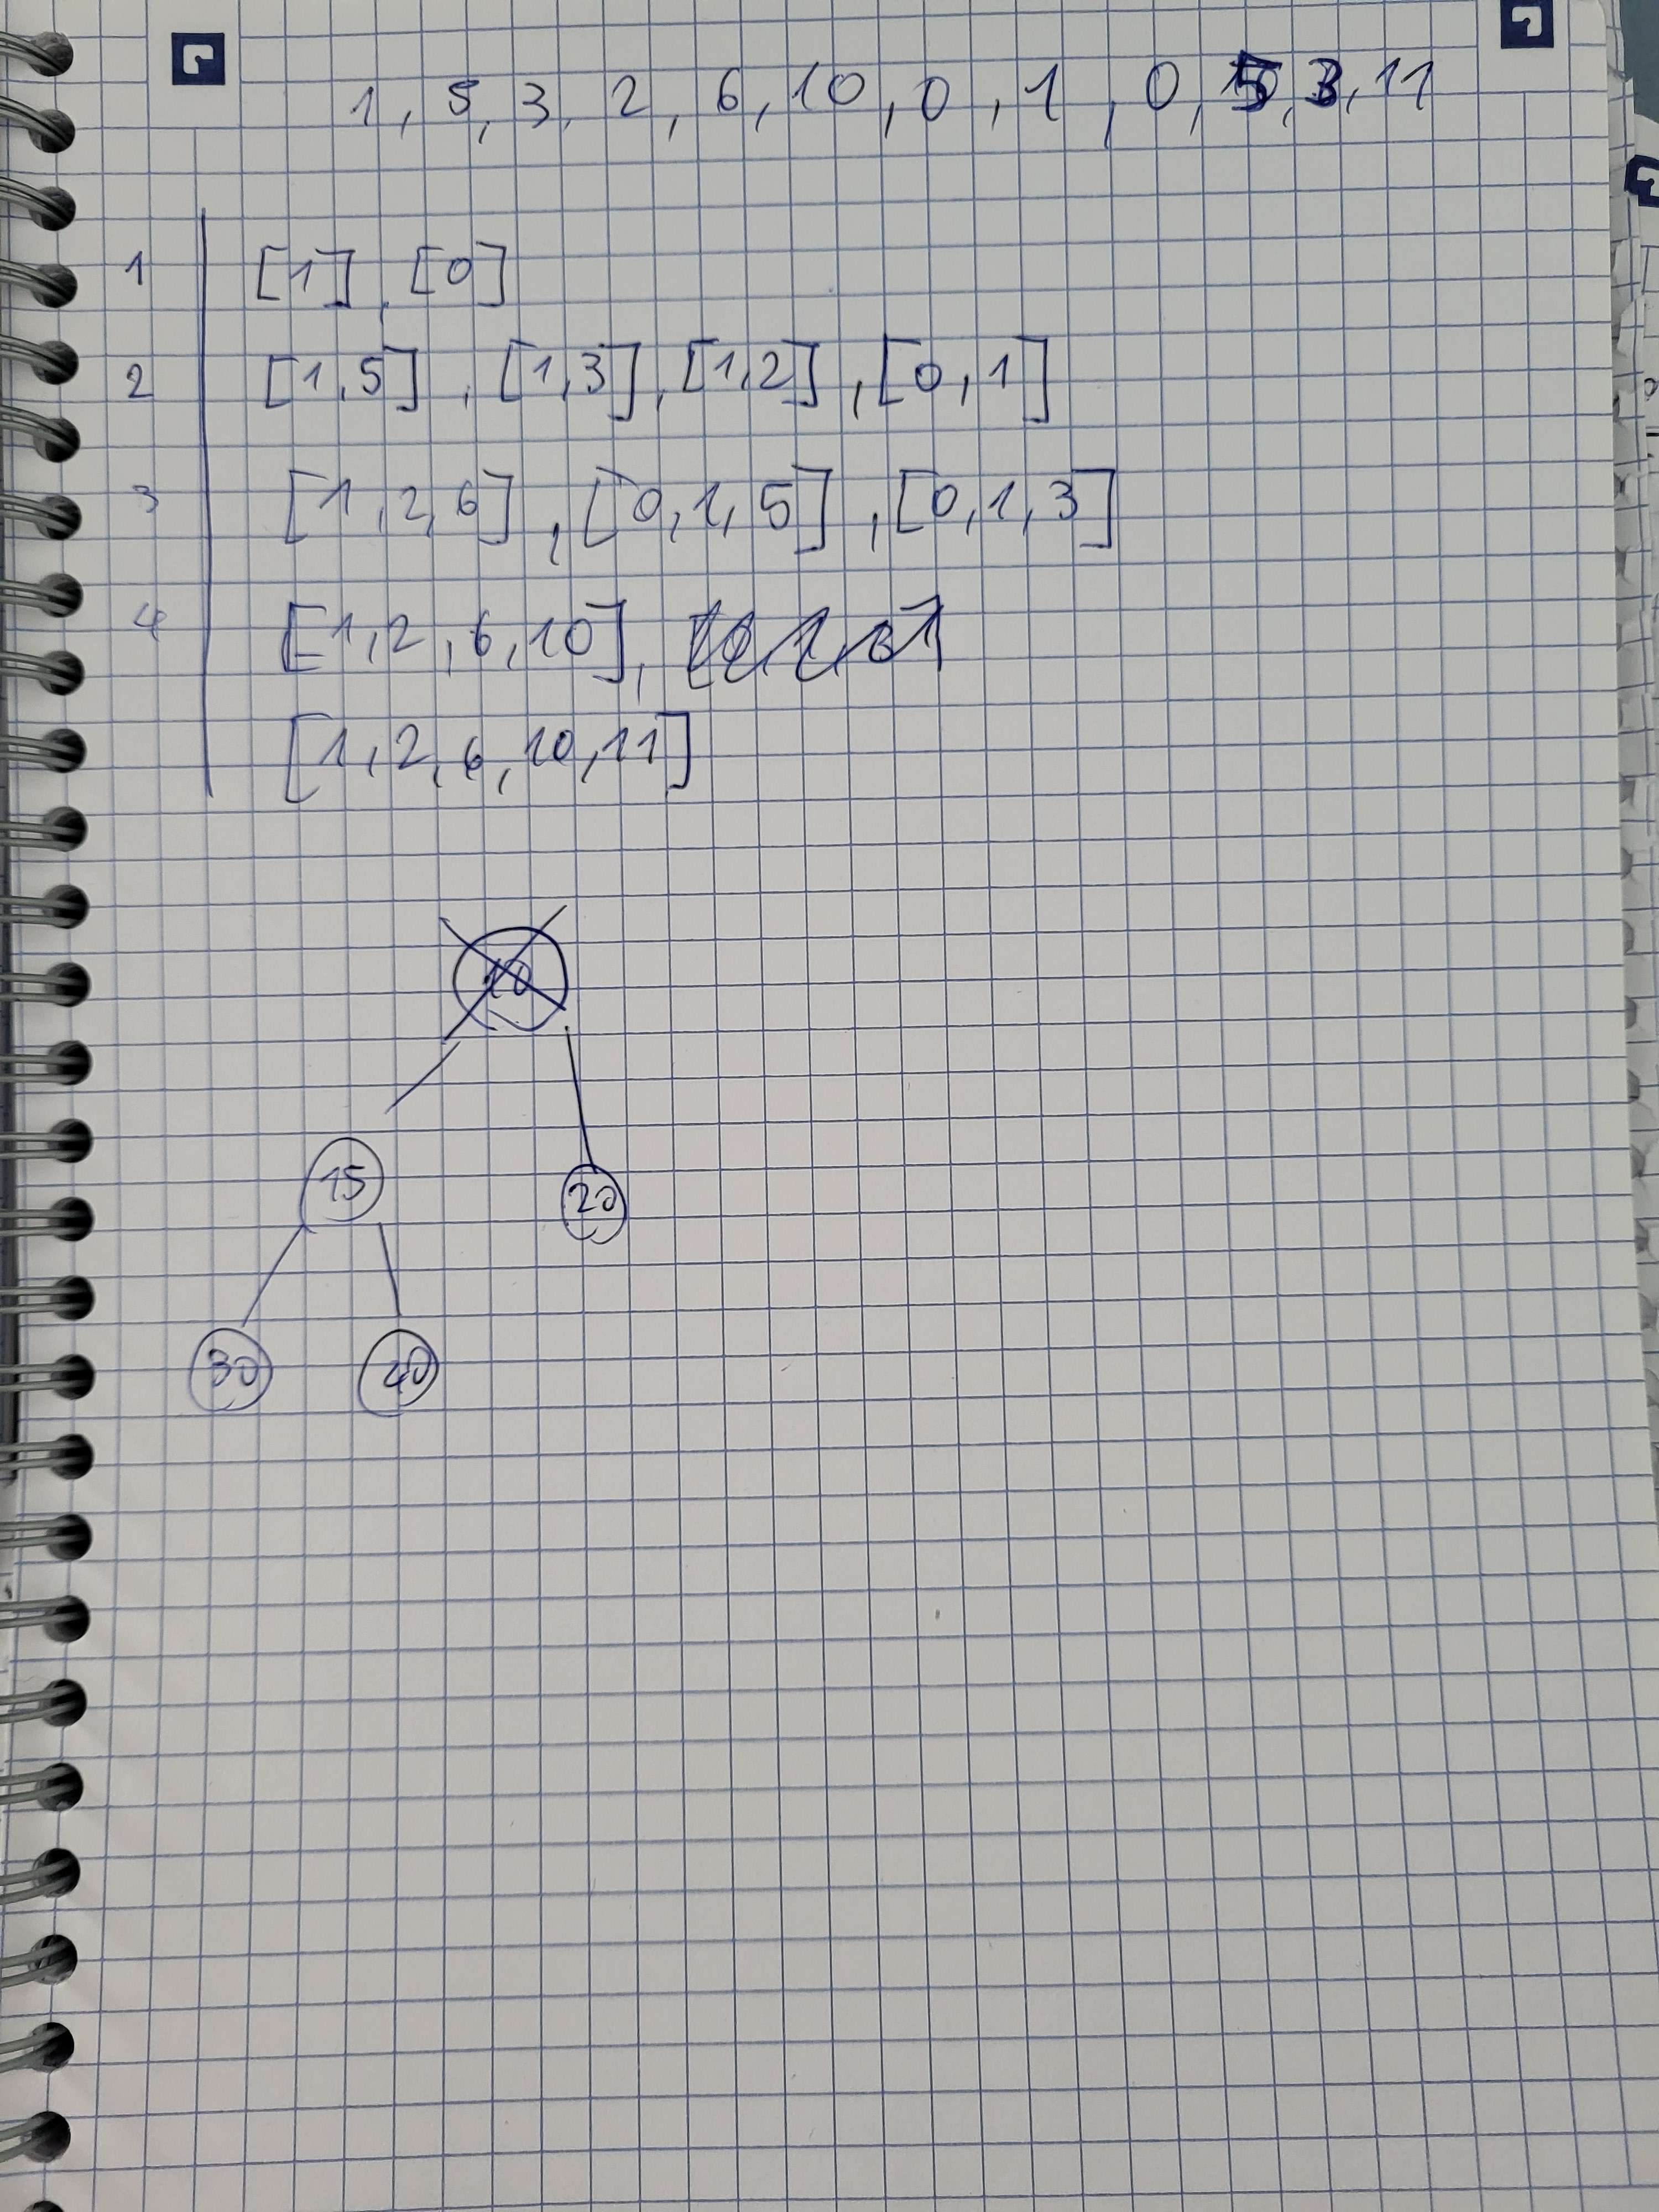 1, 5, 3, 2, 6, 10, 0, 1, 0, 5, 3, 11
1 [1], [0]
2 [1,5], [1,3], [1,2], [0,1]
3 [1,2,6], [0,1,5], [0,1,3]
4 [1,2,6,10],
[1,2,6,10,11]
10
15 20
30 40